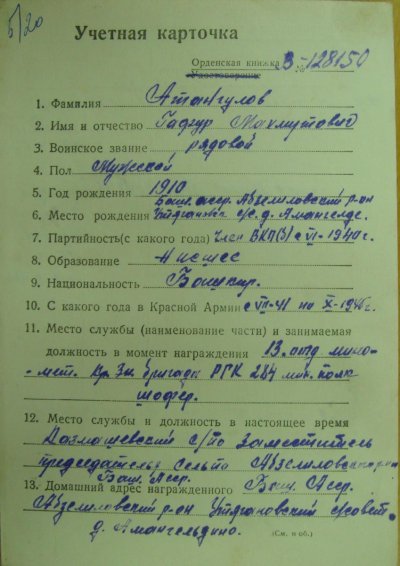 Б/20
Учетная карточка
Орденская книжка В-№128150
Удостоверение
1. Фамилия Атангулов
2. Имя и отчество Гафур Махмутович
3. Воинское звание рядовой
4. Пол Мужской
5. Год рождения 1910
Баш. асср. Абзелиловский р-он
6. Место рождения с/с. д. Амангелд.
7. Партийность (с какого года) Член ВКП(б) с VI-1940 г.
8. Образование Низшее
9. Национальность Башкир.
10. С какого года в Красной Армии с VII-41 по X-1946 г.
11. Место службы (наименование части) и занимаемая
должность в момент награждения 13. отд мино-
мет. Кр. Зн. бригады РГК 284 мин. полк
шофер.
12. Место службы и должность в настоящее время
с/по Заместитель
председателя сельпо Абзелиловского р-на
Баш. Асср.
13. Домашний адрес награжденного Баш. Асср.
Абзелиловский р-он с/совет
д. Амангельдино.
(См. н об.)